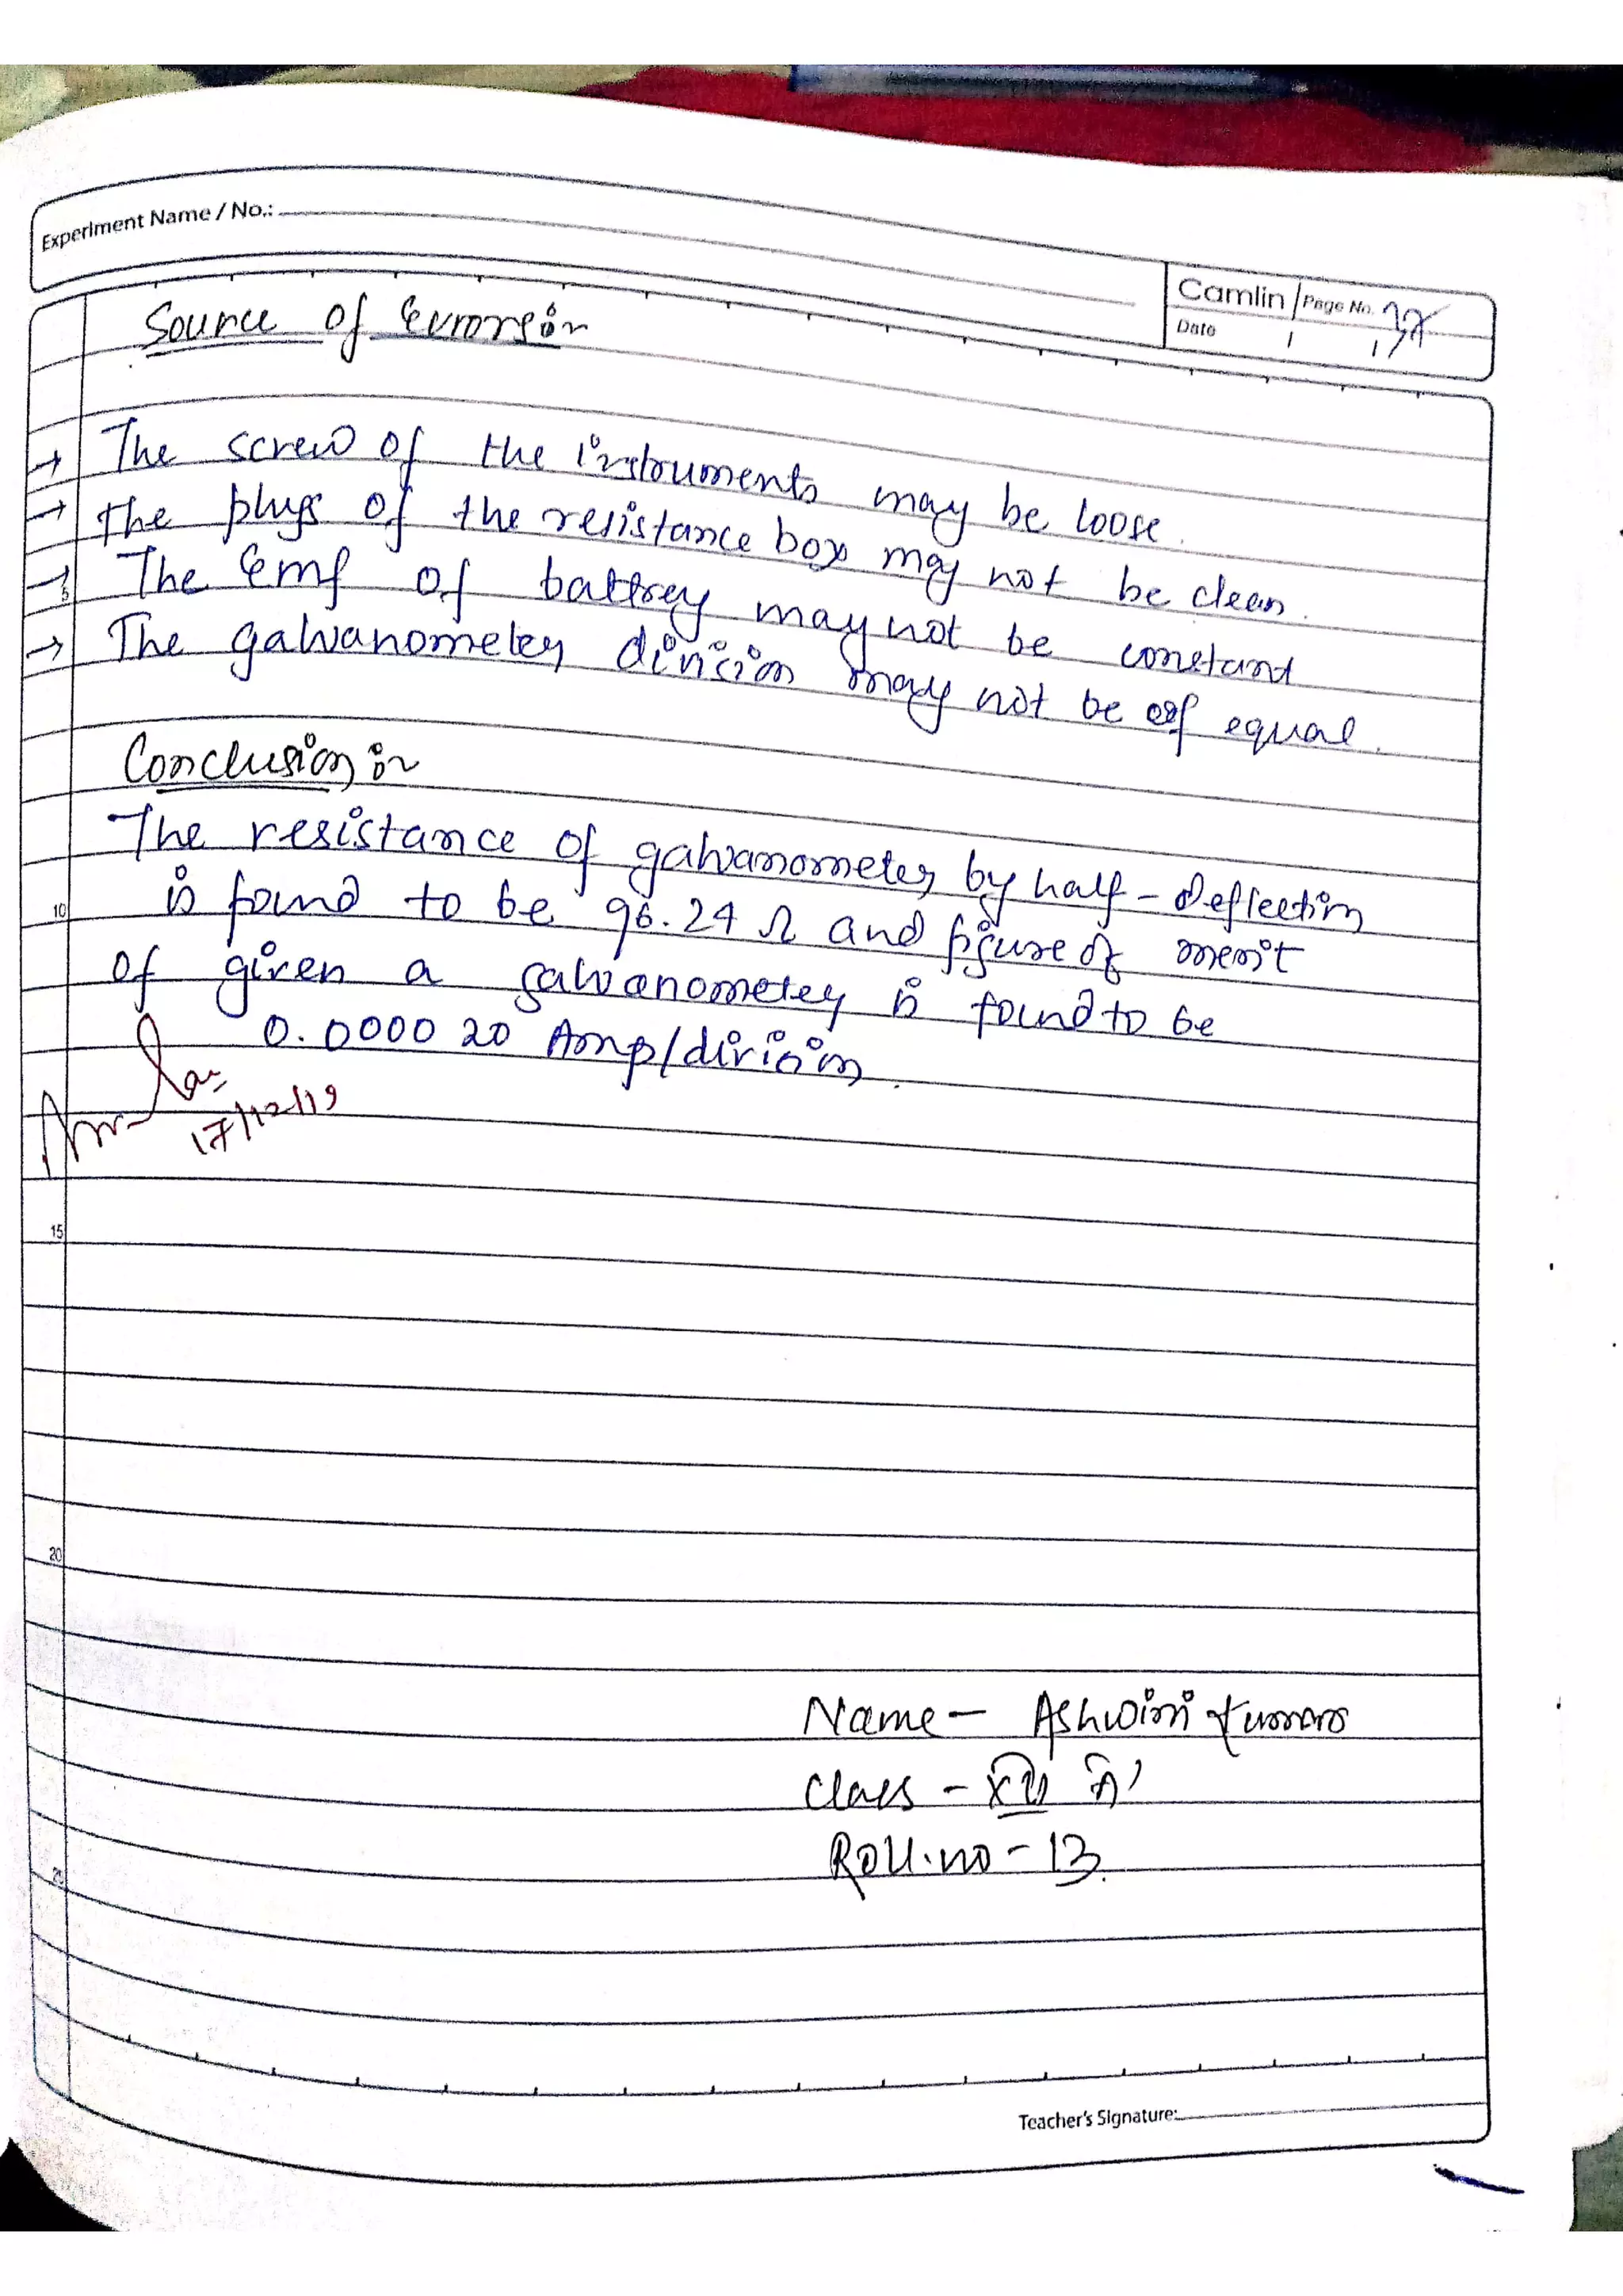 Experiment Name / No.:
Camlin Page No. 37
Date / /
Source of Errors:-
→ The screw of the instruments may be loose.
→ the plugs of the resistance box may not be clean.
→ The Emf of battrey may not be constand
5
→ The galvanometer division may not be of equal.
Conclusion:-
The resistance of galvanometer by half-deflection
10 is found to be 96.24 Ω and figure of merit
of given a galvanometer is found to be
0.0000 20 Amp/division.
17/12/19
15
20
Name - Ashwini Kumar
Class - XII 'A'
Roll.no - 13.
25
Teacher's Signature: